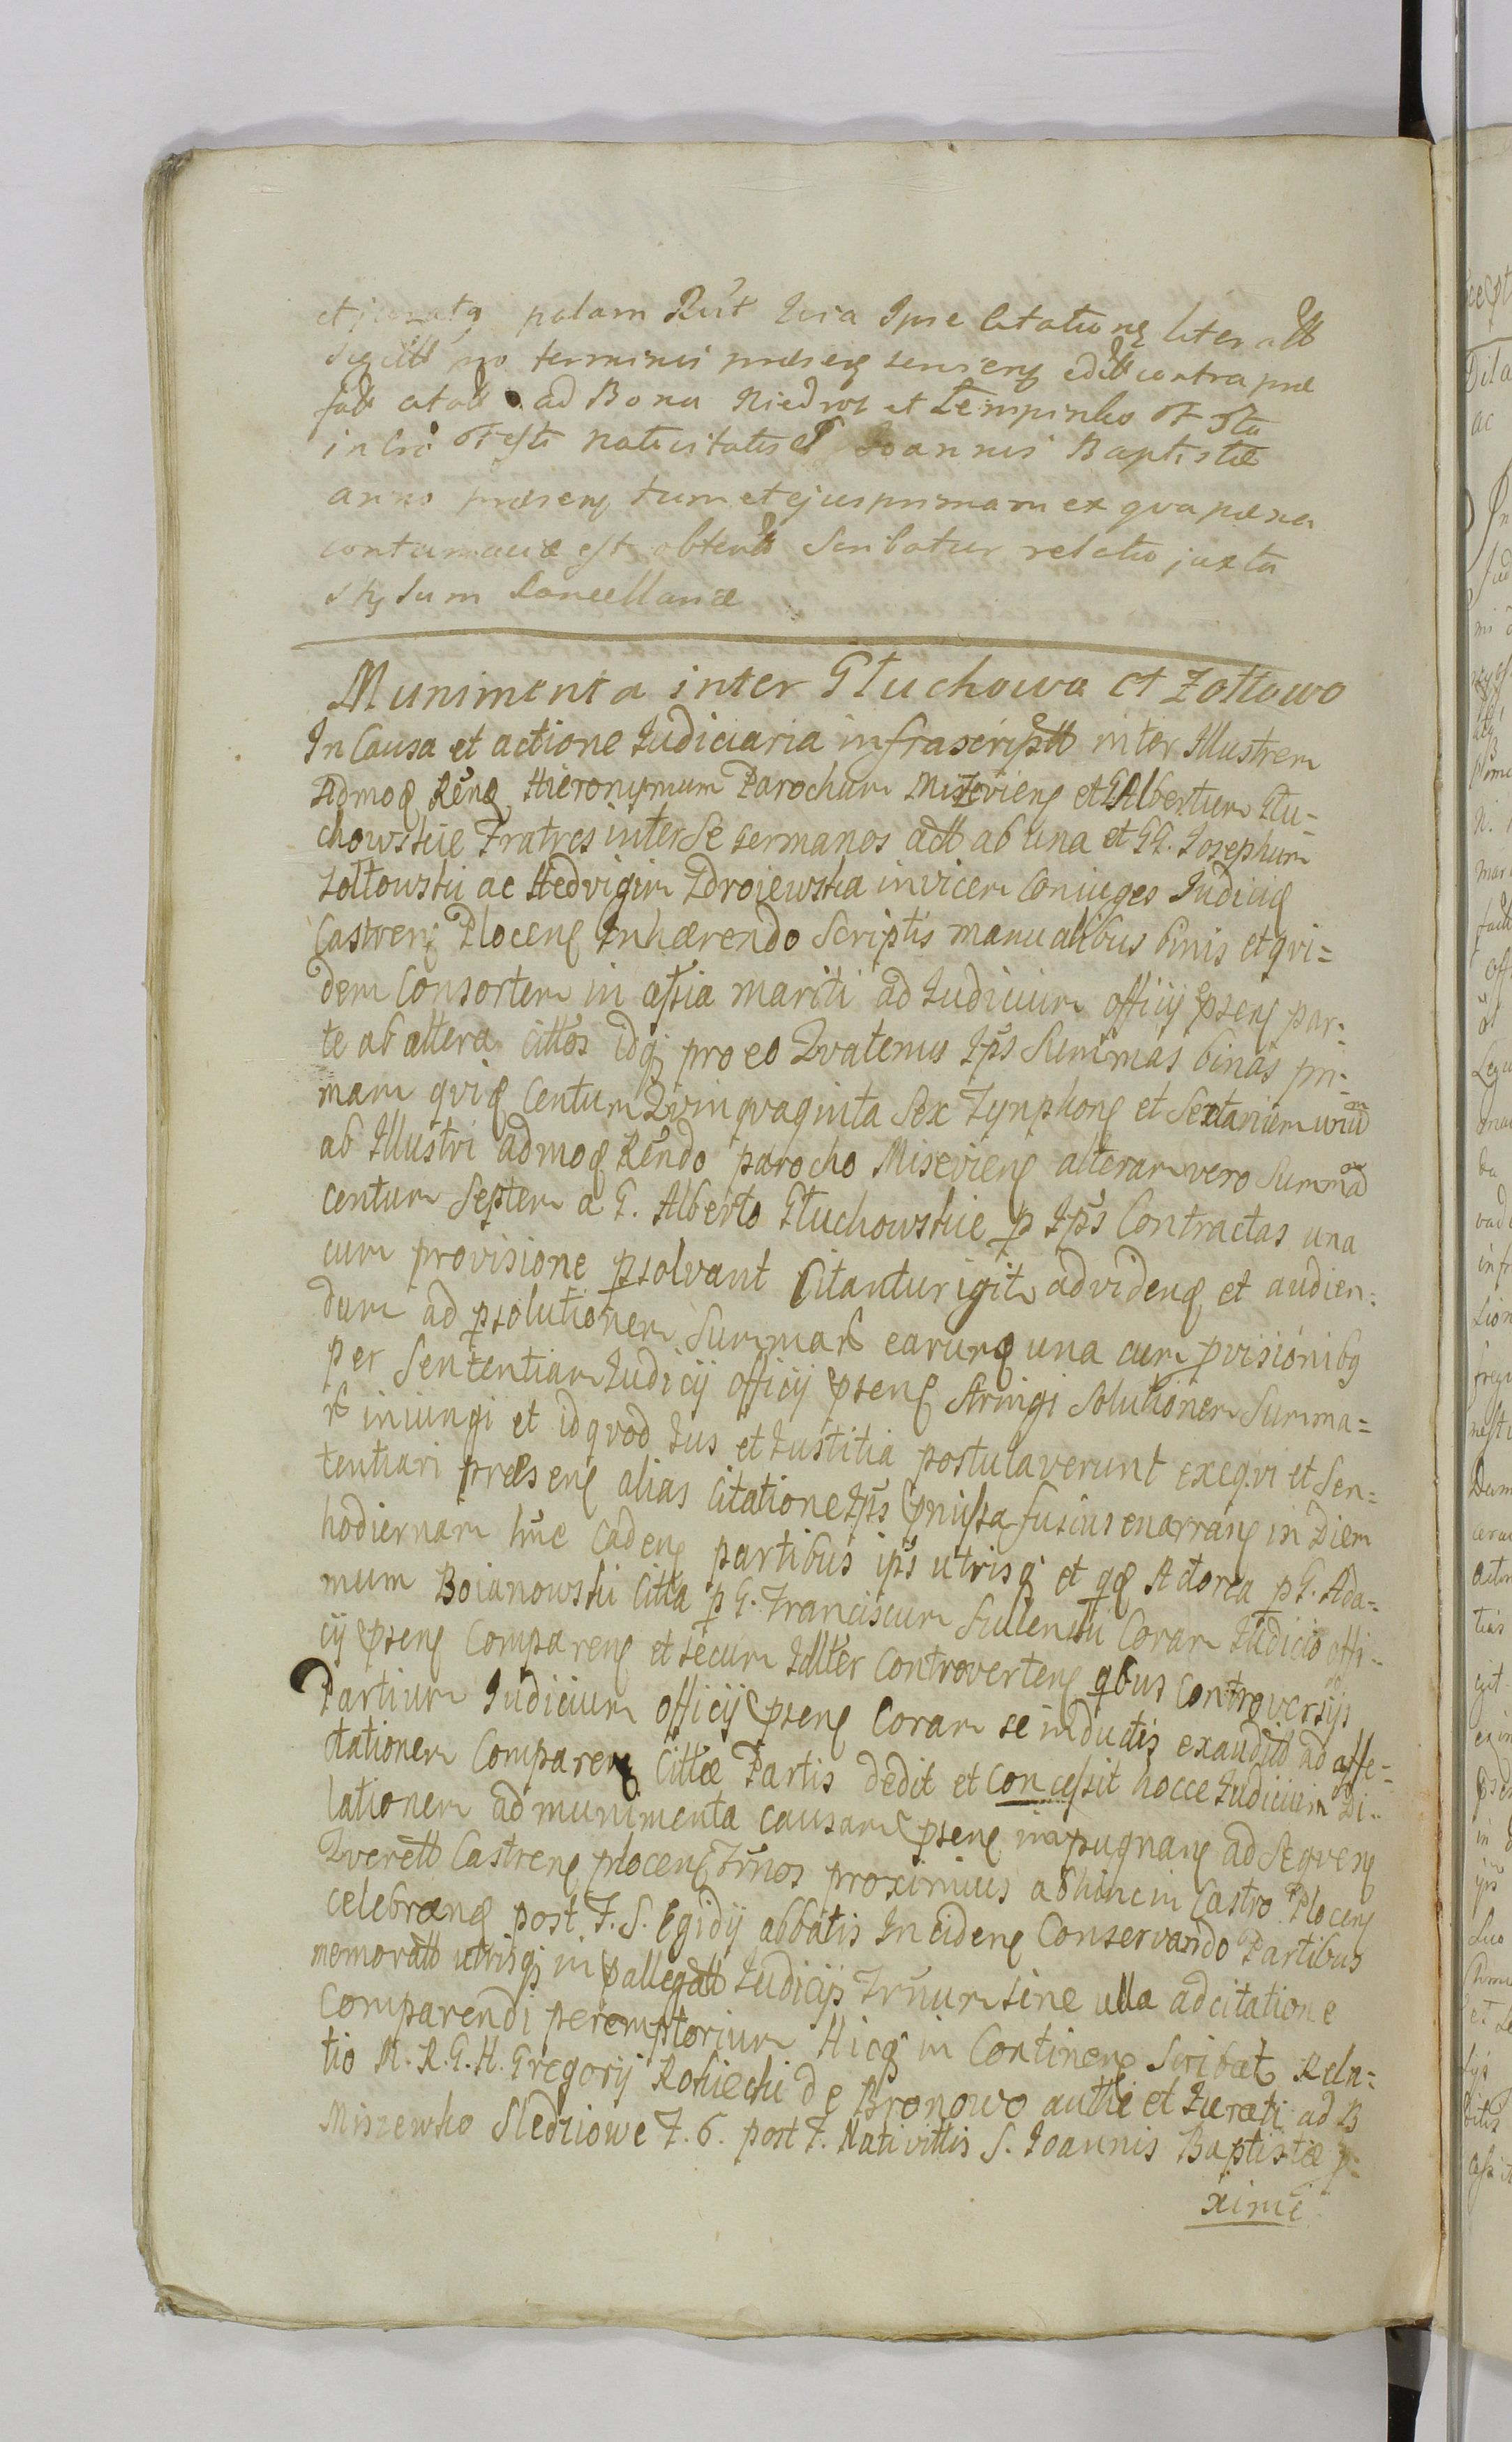 et palam Rūt Iura Ipse Citationę liter att
pro terminis præsenς edit contra præ
fatt citatt ad Bona Niedroz et Lempinko
in Cro festi Nativitatis S Joannis Baptistæ
anno præsenς tum et ejus primam ex qva pæna
contumaciæ est obtentt Scribatur relatio juxta
stylum Cancellariæ
Munimenta inter Głuchowa et Zołtowo
In Causa et actione Iudiciaria infrascriptt inter Illustrem
Admoꝗ Rēnꝗ Hieronymum Parochum Miszevienς et G Albertum Głu=
chowskie Fratres inter Se Germanos actt ab una et GG. Iosephum
Zołtowski ac Hedvigim Zdroiewska invicem Coniuges Iudiciꝗ
Castrenς Plocenς Inhærendo Scriptis manualibus binis et qvi=
dem Consortem in assia mariti ad Iudicium officij psenς par=
te ab altera cittos idqꝫ pro eo Qvatenus Ips Summas binas pri=
mam qviꝗ Centum Qvinqvaginta Sex Tynphonς et Sextariem unū
ab Illustri admoꝗ Rēndo parocho Misevienς alteram vero Summā
centum Septem a G. Alberto Głuchowskie p Ips Contractas una
cum provisione psolvant Citantur igitr ad videnꝗ et audien=
dum ad psolutionem Summarς earumꝗ una cum pvisionibꝫ
per Sententiam Iudicij officij psenς Stringi Solutionem Summa=
rς iniungi et id qvod Ius et Iustitia postulaverunt exeqvi et Sen=
tentiari præsenς alias Citatione Ips pmissa fusius enarranς in Diem
hodiernam hūc Cadenς partibus ips utrisqꝫ et qꝗ Actorea p G. Ada=
mum Boianowski Citta p G. Franciscum Sulenski Coram Iudicio offi=
cij psenς Comparenς et secum Idlter Controvertenς qbus Controversijs
Partium Iudicium officij psenς Coram se inductis exauditꝫ ad affe=
ctationem Comparenς Cittæ Partis dedit et Concessit hocce Iudicium Di=
lationem ad munimenta causam psenς impugnanς ad Seqvenς
Qverett Castrenς plocenς Trnos proximius abhinc in Castro Plocenς
celebranꝗ post F. S. Egidij abbatis Incidenς Conservando Partibus
memoratt utrisqꝫ in pallegatt Iudicijs Trnum sine ulla adcitatione
Comparendi peremptorium Hicqꝫ in Continenς Scribatꝫ Rela=
tio M. R. G. H. Gregorij Rokiecki de Bronowo authi et Iurati ad B
Miszewko Sledziowe F. 6. post F. Nativittis S. Ioannis Baptistæ p=
ximi